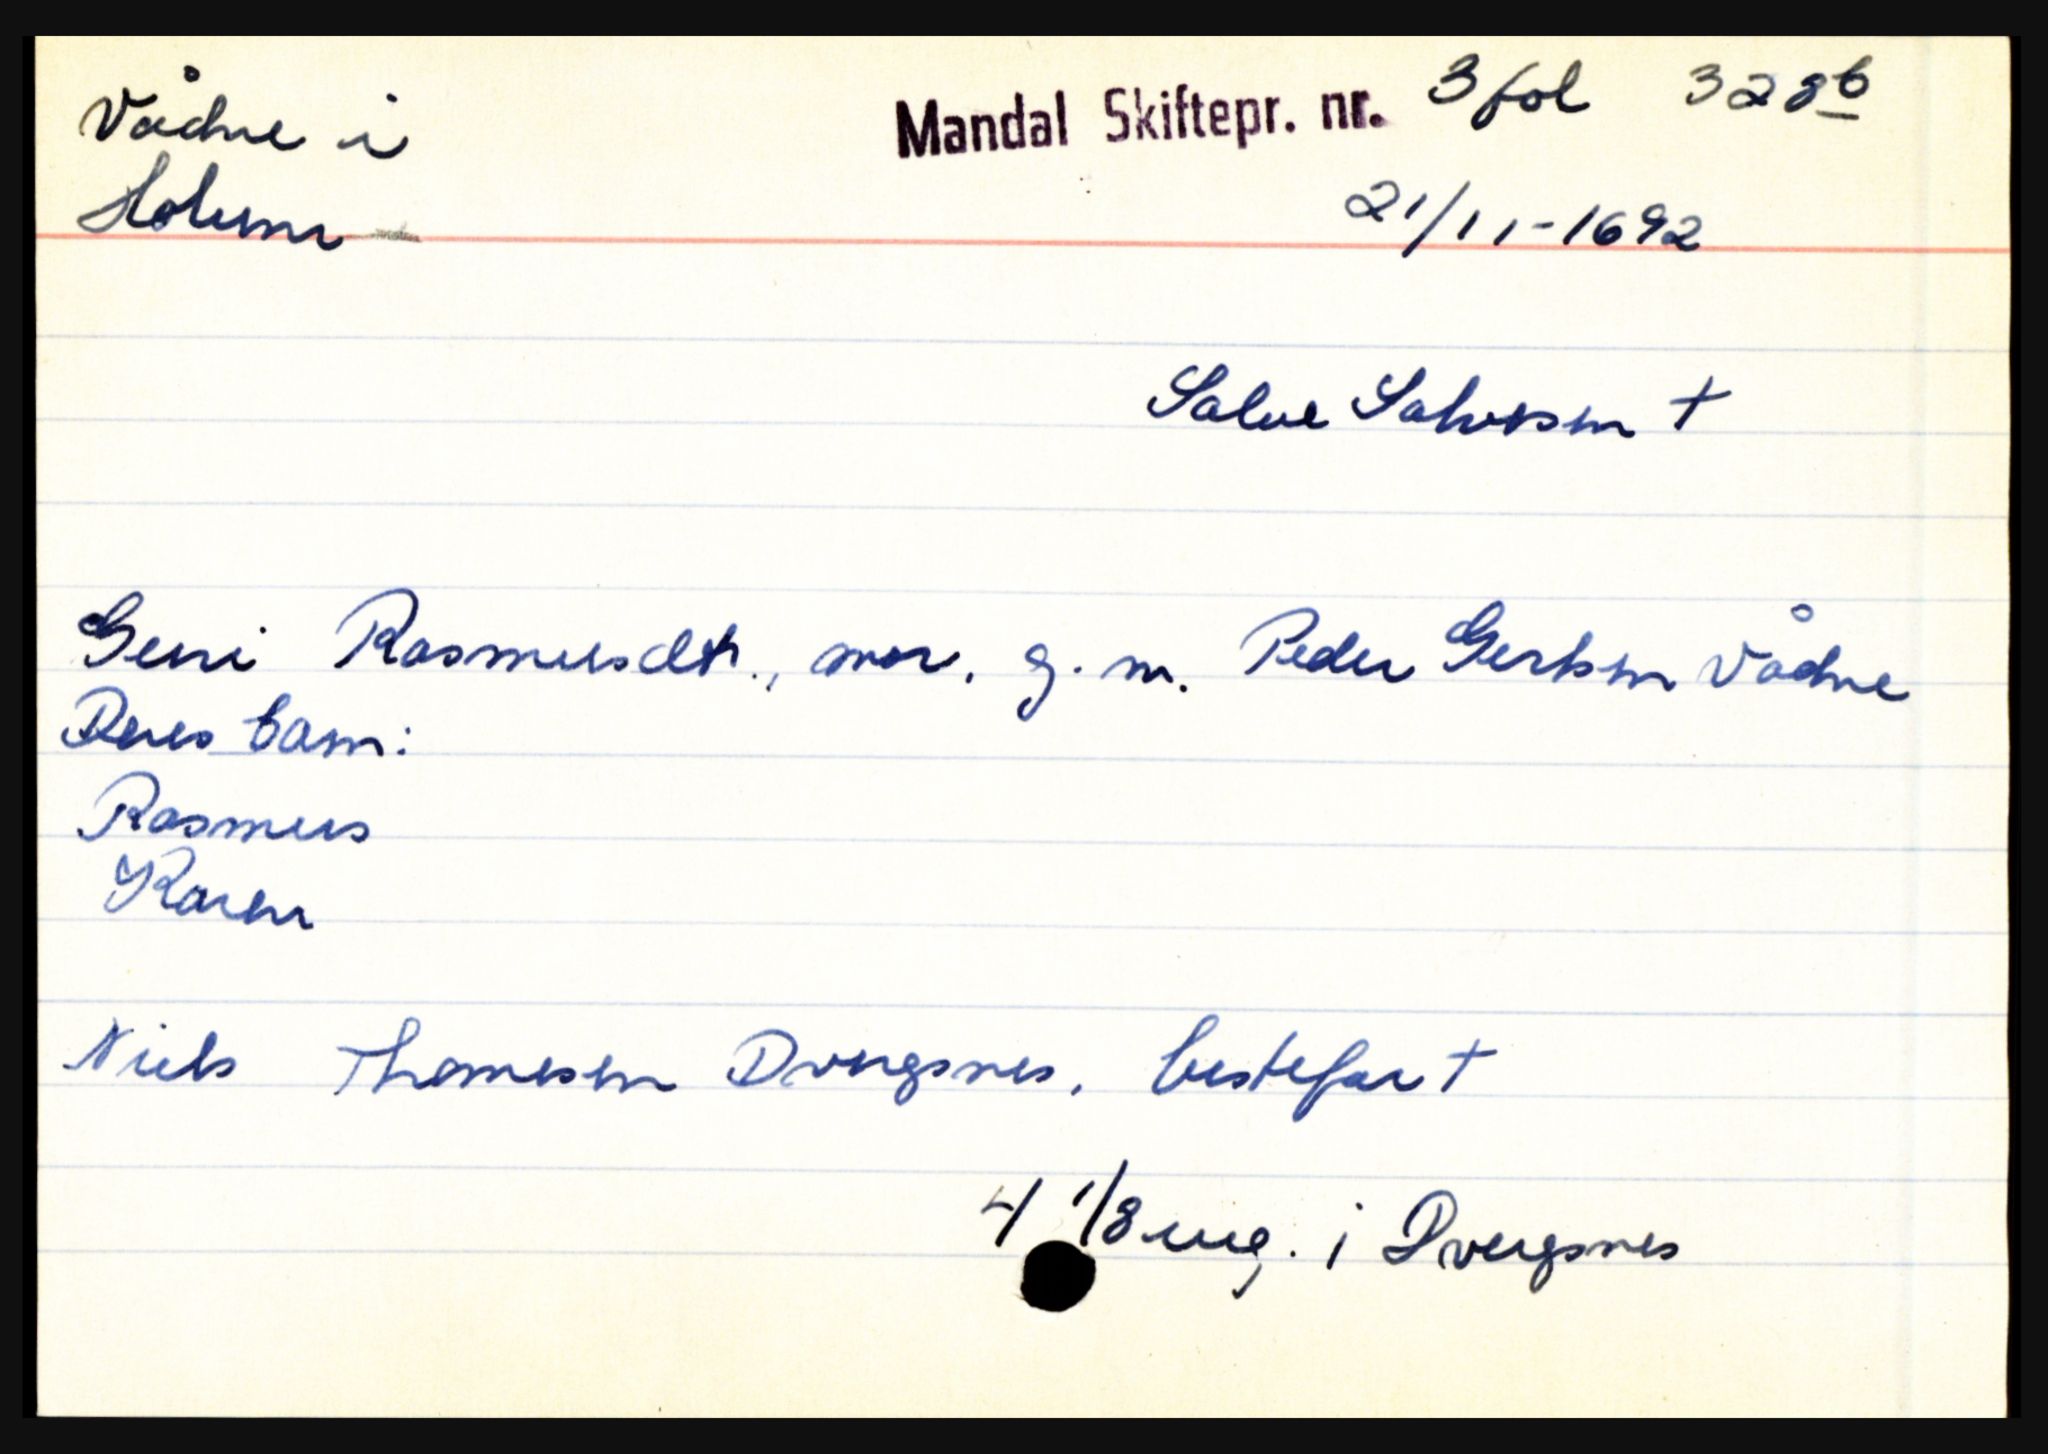 Vådne i
Holum
Mandal Skiftepr. nr. 3 fol 328b
21/11-1692
Salve Salvesen †
Geni Rasmusdt., mor, g. m. Peder Gertsen Vådne
Deres barn:
Rasmus
Karen
Niels Thomesen Dvergsnes, bestefar †
4 1/8 eng. i Dvergsnes